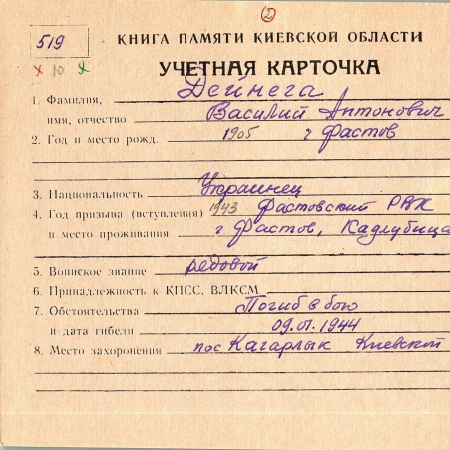 2
519
КНИГА ПАМЯТИ КИЕВСКОЙ ОБЛАСТИ
х Ю Я
УЧЕТНАЯ КАРТОЧКА
1. Фамилия, Дейнега
имя, отчество Василий Антонович
2. Год и место рожд. 1905 г Фастов
3. Национальность Украинец
4. Год призыва (вступления) 1943 Фастовский РВК
и место проживания г Фастов, Кадлубица
5. Воинское звание редовой
6. Принадлежность к КПСС, ВЛКСМ
7. Обстоятельства Погиб в бою
и дата гибели 09.01.1944
8. Место захоронения пос Кагарлык Киевской